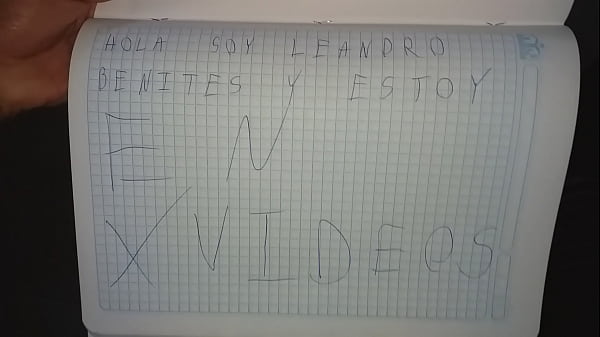 HOLA SOY LEANDRO
BENITES Y ESTOY
EN
XVIDEOS